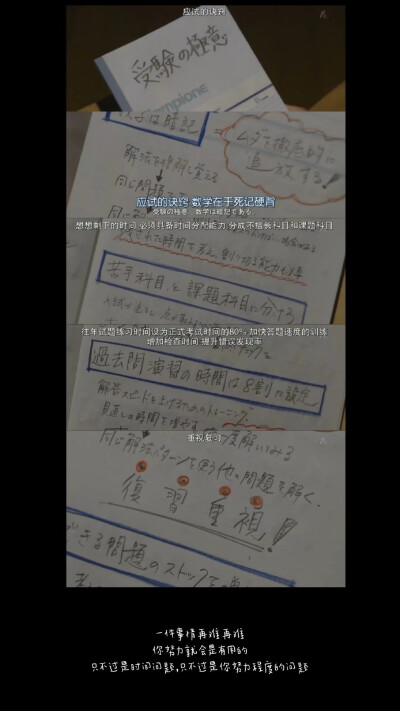 应试的诀窍
受験の極意
数学は暗記
ムダを徹底的に
追放する!
解法を理解し覚える
应试的诀窍 数学在于死记硬背
受験の極意 数学は暗記である
想想剩下的时间 必须具备时间分配能力 分成不擅长科目和课题科目
苦手科目と課題科目に分ける
往年试题练习时间设为正式考试时间的80% 加快答题速度的训练
增加检查时间 提升错误发现率
過去問演習の時間は8割に設定
解答スピードを上げるためのトレーニング
見直しの時間を増やす
重视复习
同じ解法パターンを使う他の問題を解く、
復習重視!
できる問題のストックを
一件事情再难再难
你努力就会是有用的
只不过是时间问题,只不过是你努力程度的问题